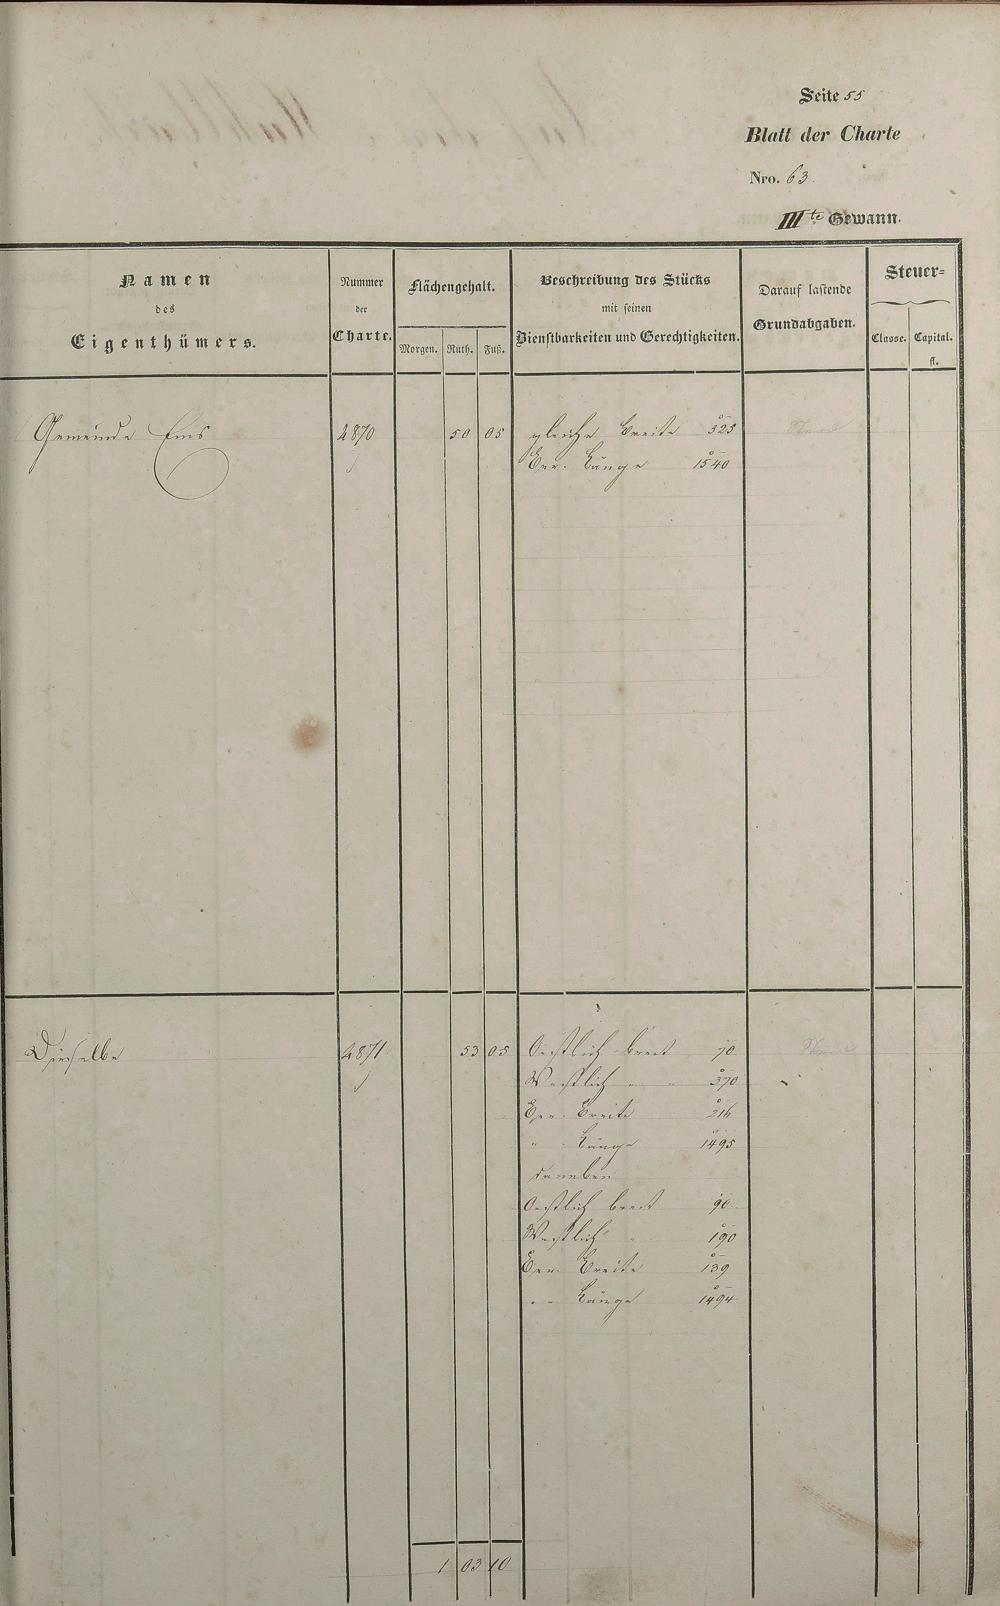 Seite 55
Blatt der Charte
Nro. 63
III te Gewann.
Namen
des
Eigenthümers.
Nummer
der
Charte.
Flächengehalt.
Morgen. Ruth. Fuß.
Beschreibung des Stücks
mit seinen
Dienstbarkeiten und Gerechtigkeiten.
Darauf lastende
Grundabgaben.
Steuer-
Classe. Capital.
fl.
Gemeinde Ems 4870 50 05 gleiche Breite 325
Ger. Länge 1540
Dieselbe 4871 53 05 Oestlich breit 70
Westlich " " 370
Ger. Breite 216
" " Länge 1495
daneben
Oestlich breit 90
Westlich " 190
Ger. Breite 139
" " Länge 1494
1 03 10